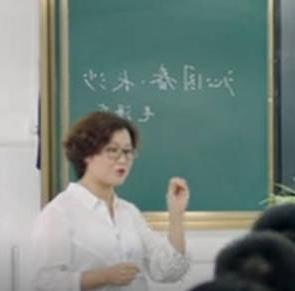 沁园春·长沙
毛泽东